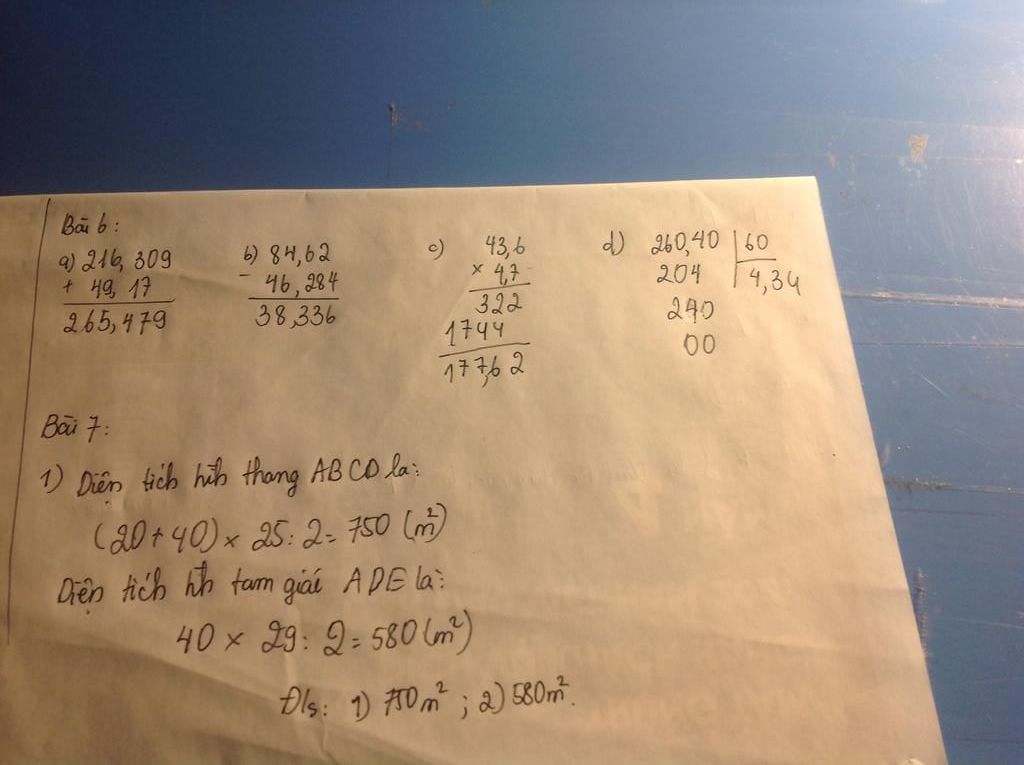 Bài 6:
a) 216,309
+ 49,17
265,479
b) 84,62
- 46,284
38,336
c) 43,6
× 4,7
322
1744
177,62
d) 260,40 | 60
204 4,34
240
00
Bài 7:
1) Diện tích hìh thang ABCD là:
(20 + 40) × 25 : 2 = 750 (m²)
Diện tích hìh tam giái ADE là:
40 × 29 : 2 = 580 (m²)
Đ/s: 1) 750 m² ; 2) 580 m².